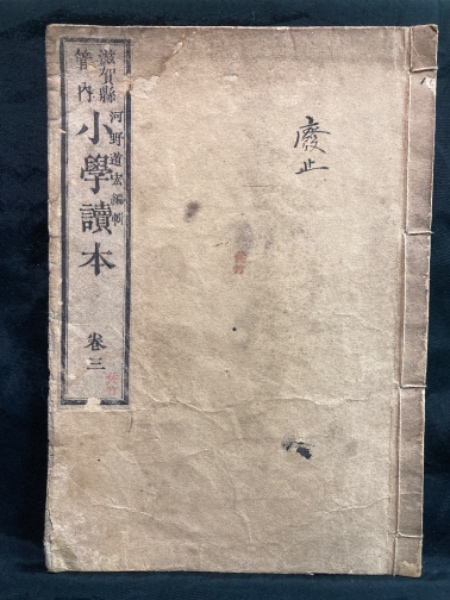 滋賀縣
管內
河野道宏編輯
小學讀本
卷三
廢止